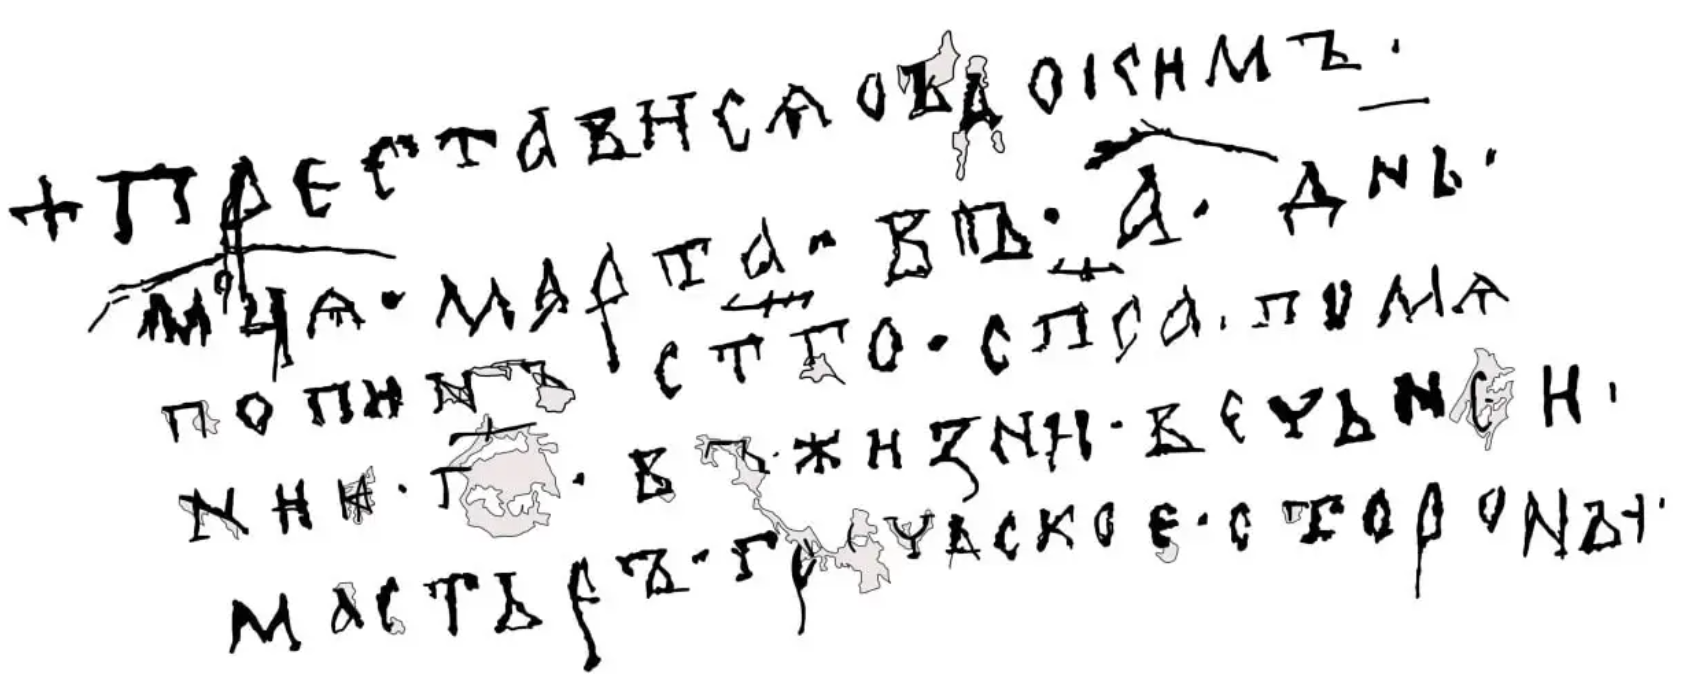 + ПРЕСТАВИСѦ ОВДОКИМЪ ·
МЦѦ · МАРТА · ВЪ · А · ДНЬ ·
ПОПИНЪ СТГО · СПСА · ПОМѦ
НИИ · ГИ · ВЪ · ЖИЗНИ · ВЕЧЬНЕИ ·
МАСТЬРЪ · ГРЕЧЬСКОЕ · СТОРОНЫ ·